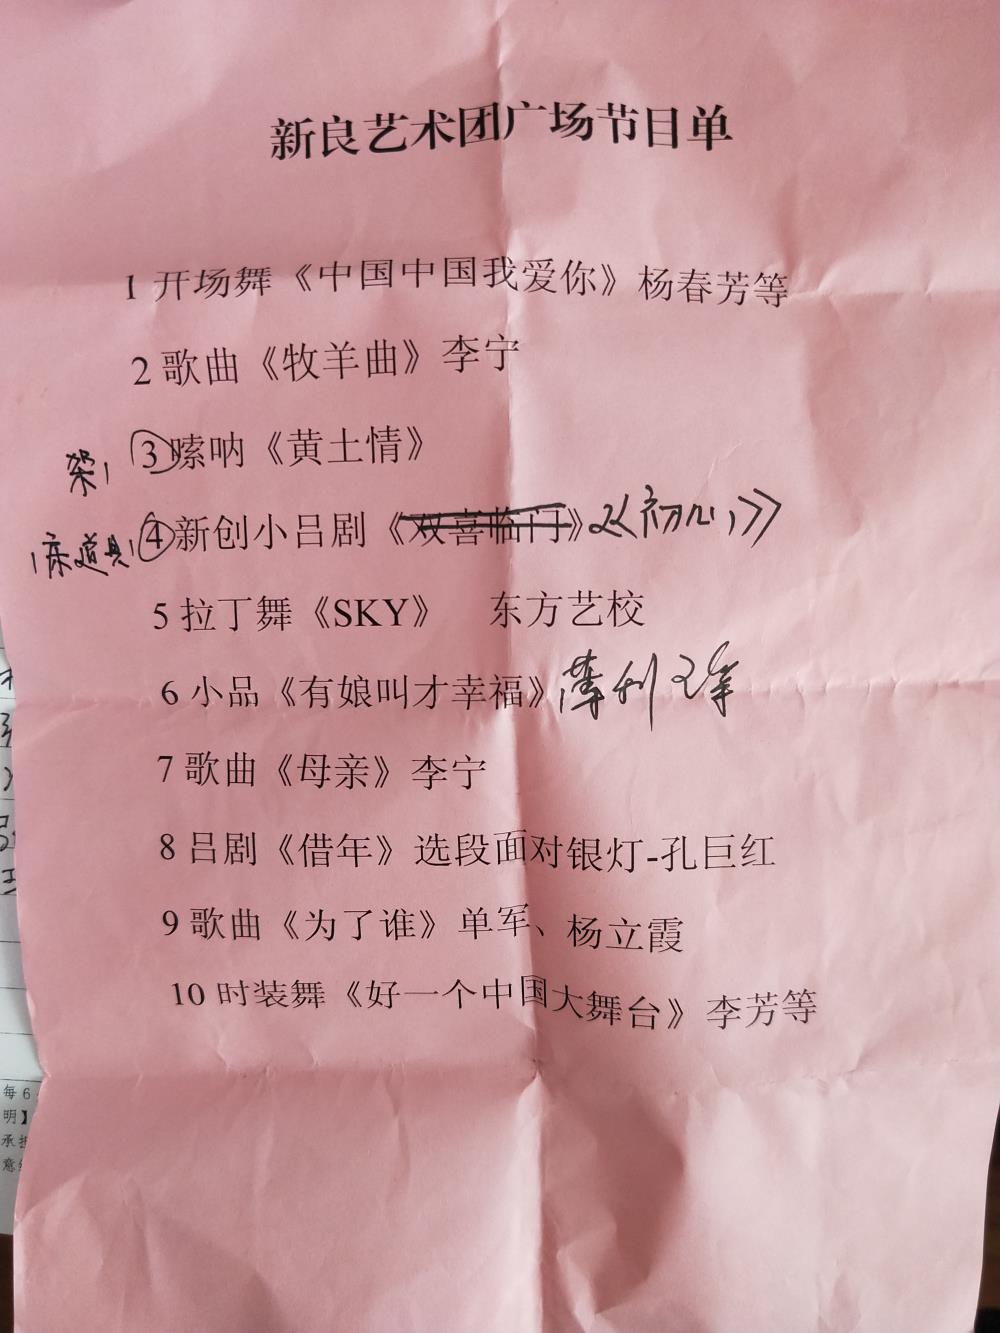 新良艺术团广场节目单
1 开场舞《中国中国我爱你》杨春芳等
2 歌曲《牧羊曲》李宁
架1 ③嗦呐《黄土情》
④新创小吕剧《双喜临门》《初心》
5 拉丁舞《SKY》 东方艺校
6 小品《有娘叫才幸福》
7 歌曲《母亲》李宁
8 吕剧《借年》选段面对银灯-孔巨红
9 歌曲《为了谁》单军、杨立霞
10 时装舞《好一个中国大舞台》李芳等
每6
明】
承担
意